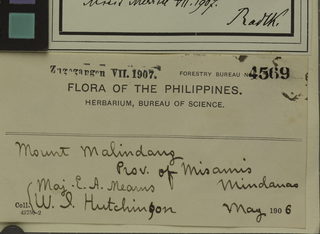 VII. 1907.
Radlk.
Zugegangen VII. 1907. FORESTRY BUREAU No. 4569
FLORA OF THE PHILIPPINES.
HERBARIUM, BUREAU OF SCIENCE.
Mount Malindang
Prov. of Misamis
Maj. E. A. Mearns Mindanao
Coll. W. I. Hutchinson May 1906